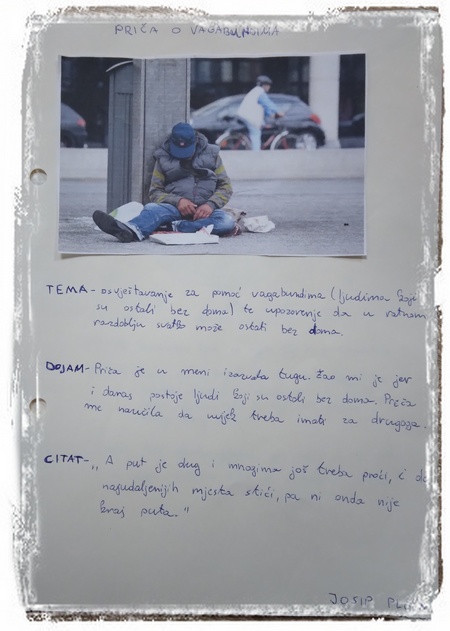 PRIČA O VAGABUNDIMA
TEMA - osvještavanje za pomoć vagabundima (ljudima koji
su ostali bez doma) te upozorenje da u ratnom
razdoblju svatko može ostati bez doma.
DOJAM - Priča je u meni izazvala tugu. Žao mi je jer
i danas postoje ljudi koji su ostali bez doma. Priča
me naučila da uvijek treba imati za drugoga.
CITAT - ,, A put je dug i mnogima još treba proći, i do
najudaljenijih mjesta stići, pa ni onda nije
kraj puta."
JOSIP